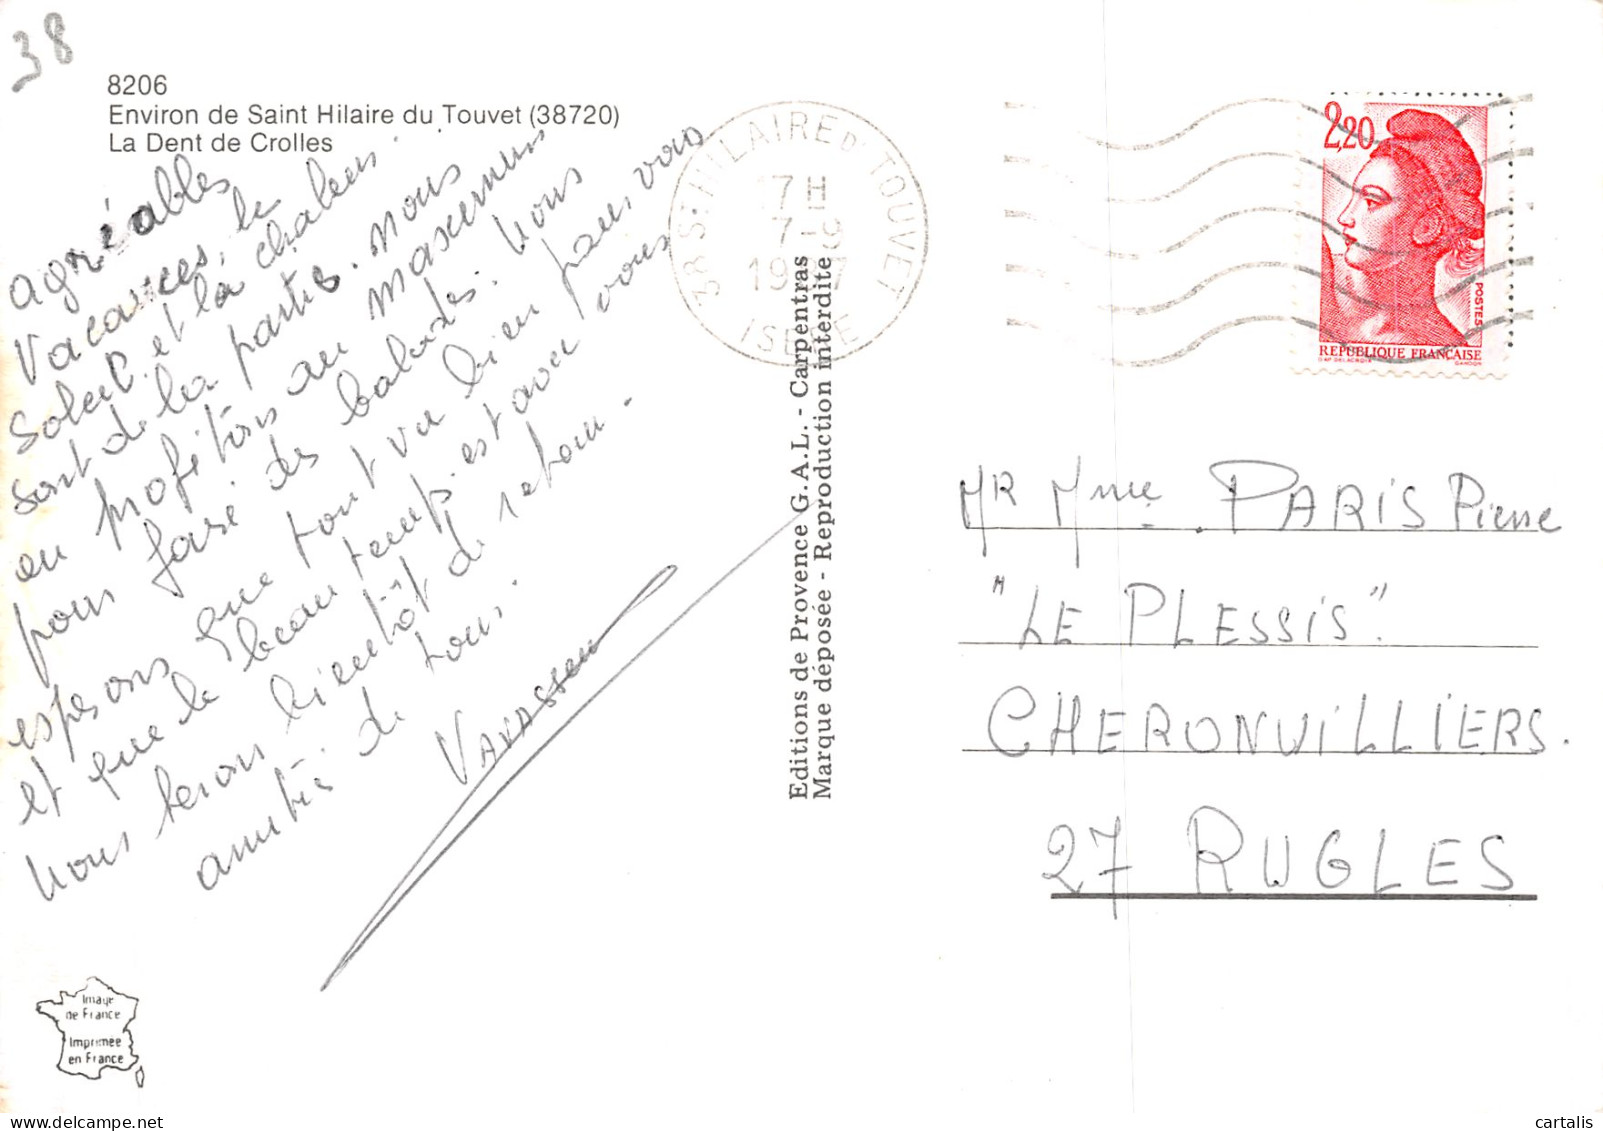 38
8206
Environ de Saint Hilaire du Touvet (38720)
La Dent de Crolles
agréables
Vacances, le
Soleil. et la chaleur.
sont de la partie. nous
en profitons au maximum
pour faire des balades. Nous
esperons que tout va bien pour vous
et que le beau temps est avec vous
Nous serons bientôt de retour.
amitiés de tous.
VAVASSEUR
Editions de Provence G.A.L. - Carpentras
Marque déposée - Reproduction interdite
38 ST HILAIRE D' TOUVET
17H
7-9
19 7
ISERE
2,20
POSTES
REPUBLIQUE FRANÇAISE
MR Mme PARIS Pierre
"LE PLESSIS".
CHERONVILLIERS.
27 RUGLES
Image
de France
Imprimée
en France
cartalis
delcampe.net